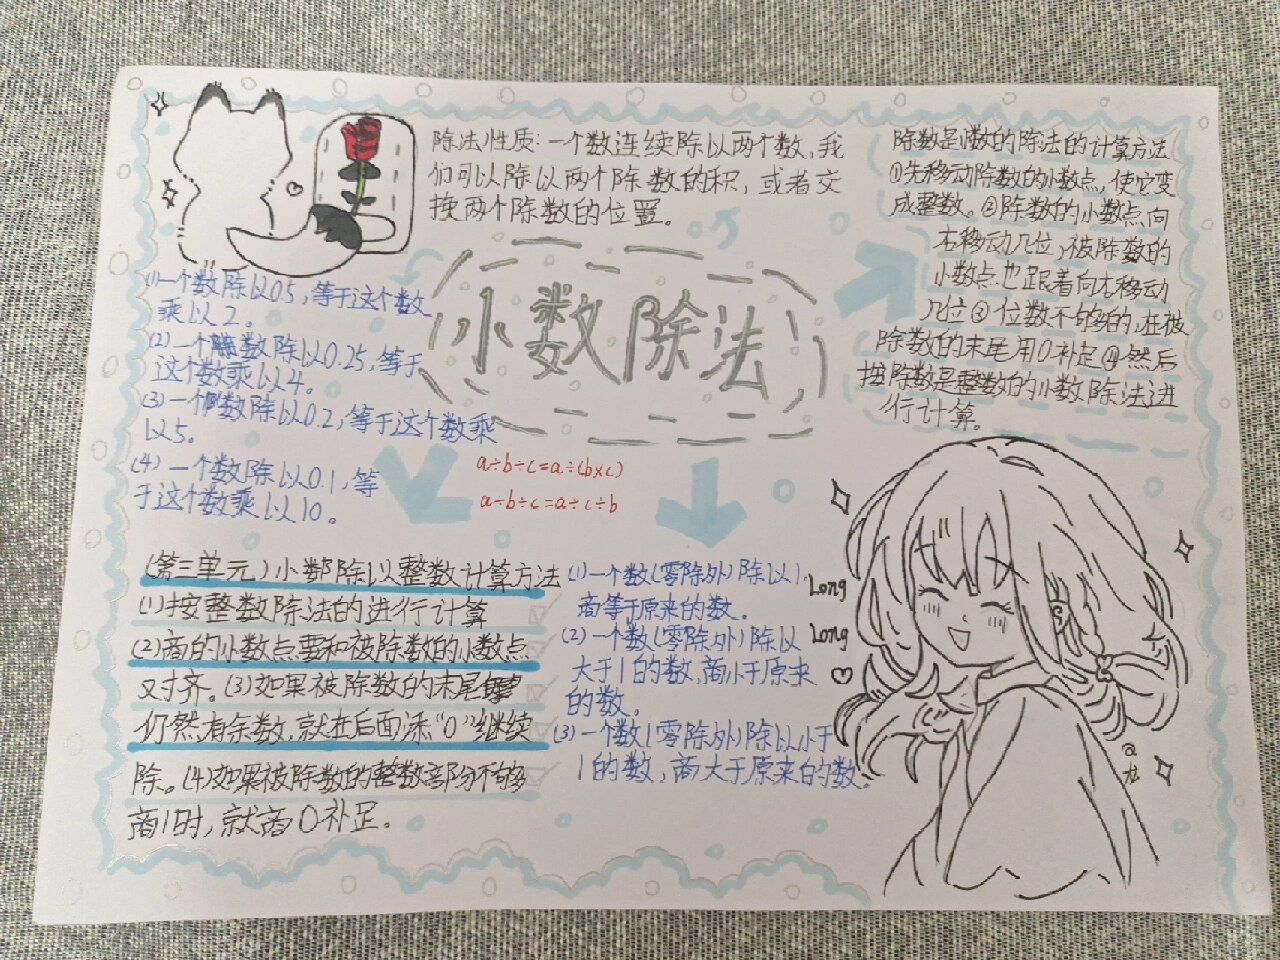 除法性质:一个数连续除以两个数,我
们可以除以两个除数的积,或者交
换两个除数的位置。
除数是小数的除法的计算方法
①先移动除数的小数点,使它变
成整数。②除数的小数点向
右移动几位,被除数的
小数点也跟着向右移动
几位③位数不够的,在被
除数的末尾用0补足④然后
按除数是整数的小数除法进
行计算。
小数除法
(1)一个数除以0.5,等于这个数
乘以2。
(2)一个数除以0.25,等于
这个数乘以4。
(3)一个数除以0.2,等于这个数乘
以5。
(4)一个数除以0.1,等
于这个数乘以10。
a÷b÷c=a÷(b×c)
a÷b÷c=a÷c÷b
(第三单元)小数除以整数计算方法
(1)按整数除法的进行计算
(2)商的小数点要和被除数的小数点
对齐。(3)如果被除数的末尾
仍然有余数,就在后面添“0”继续
除。(4)如果被除数的整数部分不够
商1时,就商0补足。
(1)一个数(零除外)除以1,
商等于原来的数。
(2)一个数(零除外)除以
大于1的数,商小于原来
的数。
(3)一个数(零除外)除以小于
1的数,商大于原来的数。
Long
Long